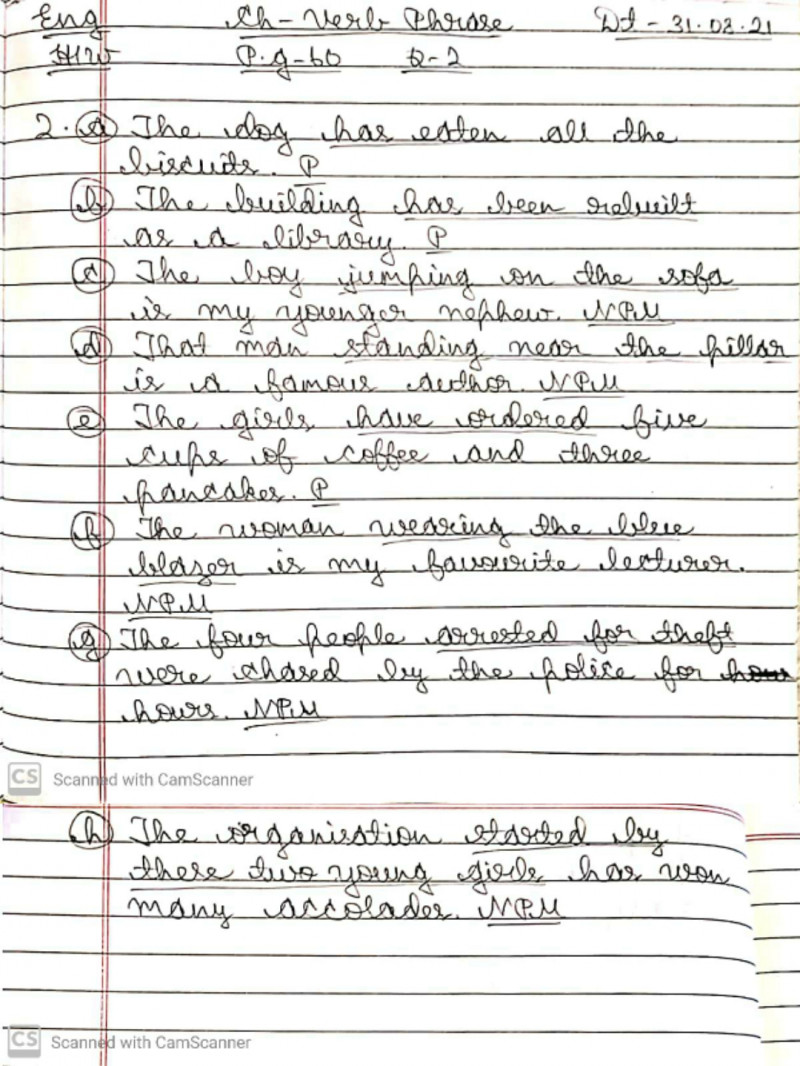 Eng Ch-Verb Phrase Dt-31.03.21
H/W P.g-60 Q-2
2. a The dog has eaten all the
biscuits. P
b The building has been rebuilt
as a library. P
c The boy jumping on the sofa
is my younger nephew. NPM
d That man standing near the pillar
is a famous author. NPM
e The girls have ordered five
cups of coffee and three
pancakes. P
f The woman wearing the blue
blazer is my favourite lecturer.
NPM
g The four people arrested for theft
were chased by the police for
hours. NPM
CS Scanned with CamScanner
h The organisation started by
these two young girls has won
many accolades. NPM
CS Scanned with CamScanner